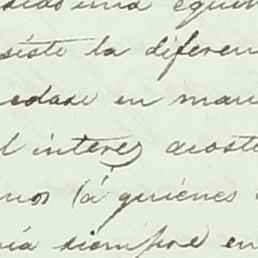 siste la diferen
edase en man
l interes acoste
nos (á quiénes
ía siempre en